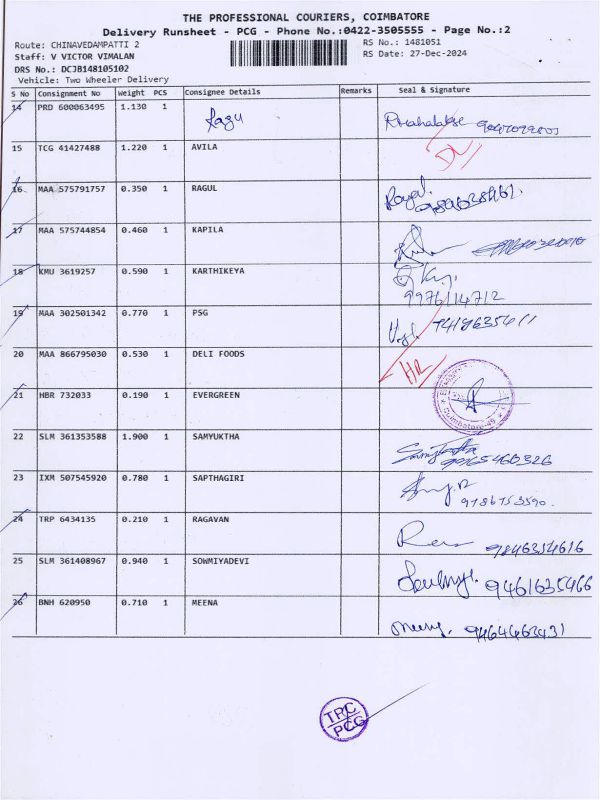 THE PROFESSIONAL COURIERS, COIMBATORE
Delivery Runsheet - PCG - Phone No.:0422-3505555 - Page No.:2
Route: CHINAVEDAMPATTI 2
RS No.: 1481051
Staff: V VICTOR VIMALAN
RS Date: 27-Dec-2024
DRS No.: DCJB148105102
Vehicle: Two Wheeler Delivery
S No Consignment No Weight PCS Consignee Details Remarks Seal & Signature
14 PRD 600063495 1.130 1
15 TCG 41427488 1.220 1 AVILA
DL
16 MAA 575791757 0.350 1 RAGUL
17 MAA 575744854 0.460 1 KAPILA
18 KMU 3619257 0.590 1 KARTHIKEYA
9976114712
19 MAA 302501342 0.770 1 PSG
20 MAA 866795030 0.530 1 DELI FOODS
HR
21 HBR 732033 0.190 1 EVERGREEN
22 SLM 361353588 1.900 1 SAMYUKTHA
23 IXM 507545920 0.780 1 SAPTHAGIRI
24 TRP 6434135 0.210 1 RAGAVAN
9846354616
25 SLM 361408967 0.940 1 SOWMIYADEVI
9461635466
26 BNH 620950 0.710 1 MEENA
9464463431
TPC
PCG